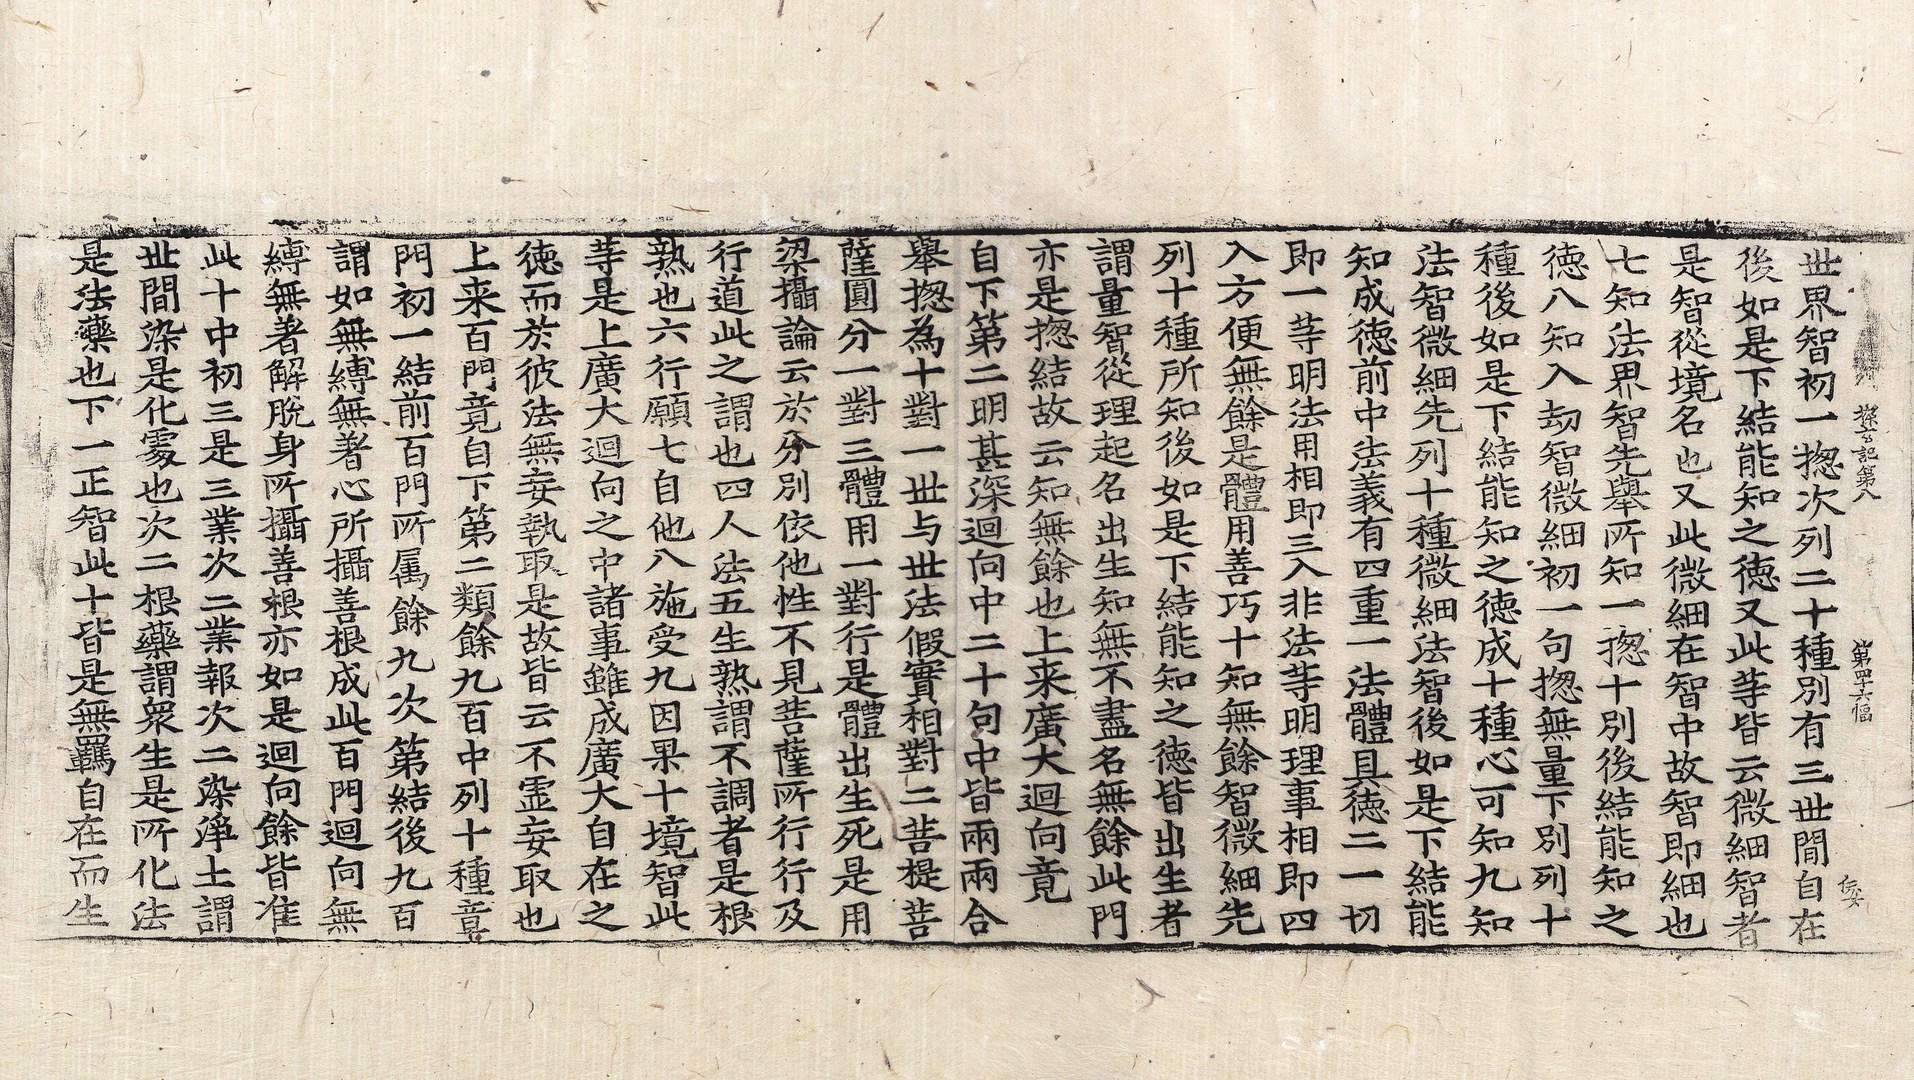 探玄記第八 第四十六幅
世界智初一揔次列二十種別有三世間自在
後如是下結能知之德又此等皆云微細智者
是智從境名也又此微細在智中故智即細也
七知法界智先舉所知一揔十別後結能知之
德八知入劫智微細初一句揔無量下別列十
種後如是下結能知之德成十種心可知九知
法智微細先列十種微細法智後如是下結能
知成德前中法義有四重一法體具德二一切
即一等明法用相即三入非法等明理事相即四
入方便無餘是體用善巧十知無餘智微細先
列十種所知後如是下結能知之德皆出生者
謂量智從理起名出生知無不盡名無餘此門
亦是揔結故云知無餘也上来廣大迴向竟
自下第二明甚深迴向中二十句中皆兩兩合
舉揔為十對一世与世法假實相對二菩提菩
薩圓分一對三體用一對行是體出生死是用
梁攝論云於分別依他性不見菩薩所行行及
行道此之謂也四人法五生熟謂不調者是根
熟也六行願七自他八施受九因果十境智此
等是上廣大迴向之中諸事雖成廣大自在之
德而於彼法無妄執取是故皆云不虛妄取也
上来百門竟自下第二類餘九百中列十種章
門初一結前百門所属餘九次第結後九百
謂如無縛無著心所攝善根成此百門迴向無
縛無著解脫身所攝善根亦如是迴向餘皆准
此十中初三是三業次二業報次二染淨土謂
世間染是化處也次二根藥謂衆生是所化法
是法藥也下一正智此十皆是無羈自在而生